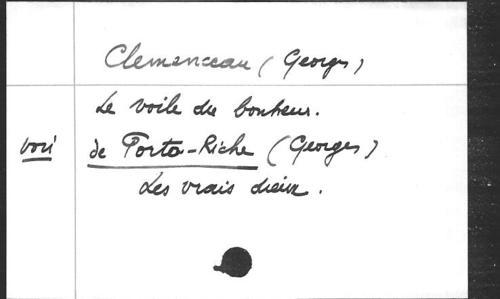 Clemenceau (Georges)
Le voile du bonheur.
voir de Porto-Riche (Georges)
Les vrais dieux.